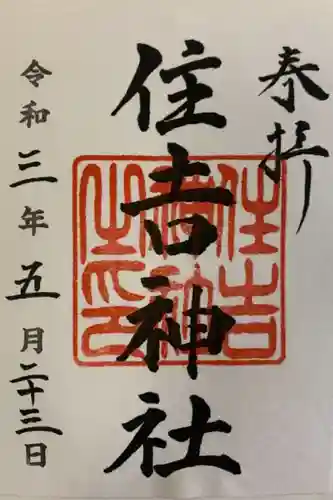 奉拝
住吉神社
令和三年五月二十三日
住吉神社之印